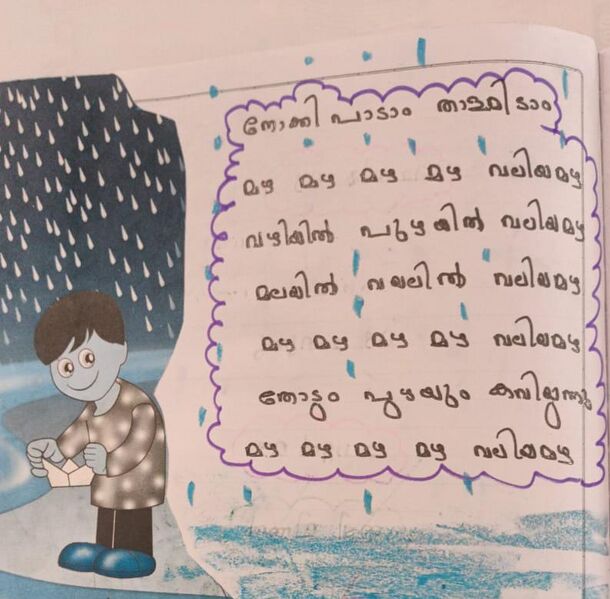 നോക്കി പാടാം താളമിടാം
മഴ മഴ മഴ മഴ വലിയമഴ
വഴിയിൽ പുഴയിൽ വലിയമഴ
മലയിൽ വയലിൽ വലിയമഴ
മഴ മഴ മഴ മഴ വലിയമഴ
തോടും പുഴയും കവിയുന്നു
മഴ മഴ മഴ മഴ വലിയമഴ